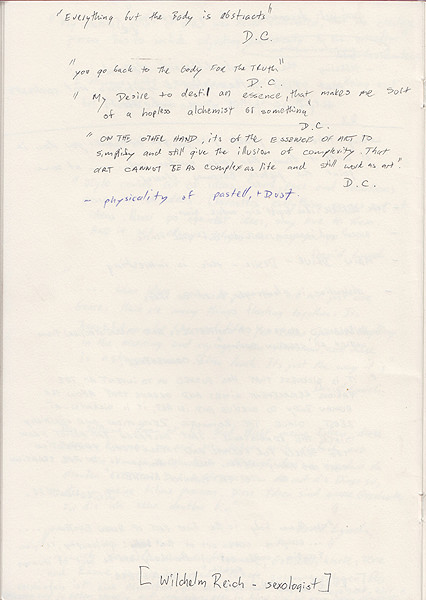 "Everything but the Body is abstracts"
D.C.
"you go back to the body for the truth."
D.C.
" My Desire to destil an essence, that makes me sort
of a hopless alchemist of something"
D.C.
" ON THE OTHER HAND, its of the ESSENCE OF ART TO
simplify and still give the illusion of complexity. That
ART CANNOT BE AS complex as life and still work as art"
D.C.
- physicality of pastell, + Dust.
[Wilchelm Reich - sexologist]